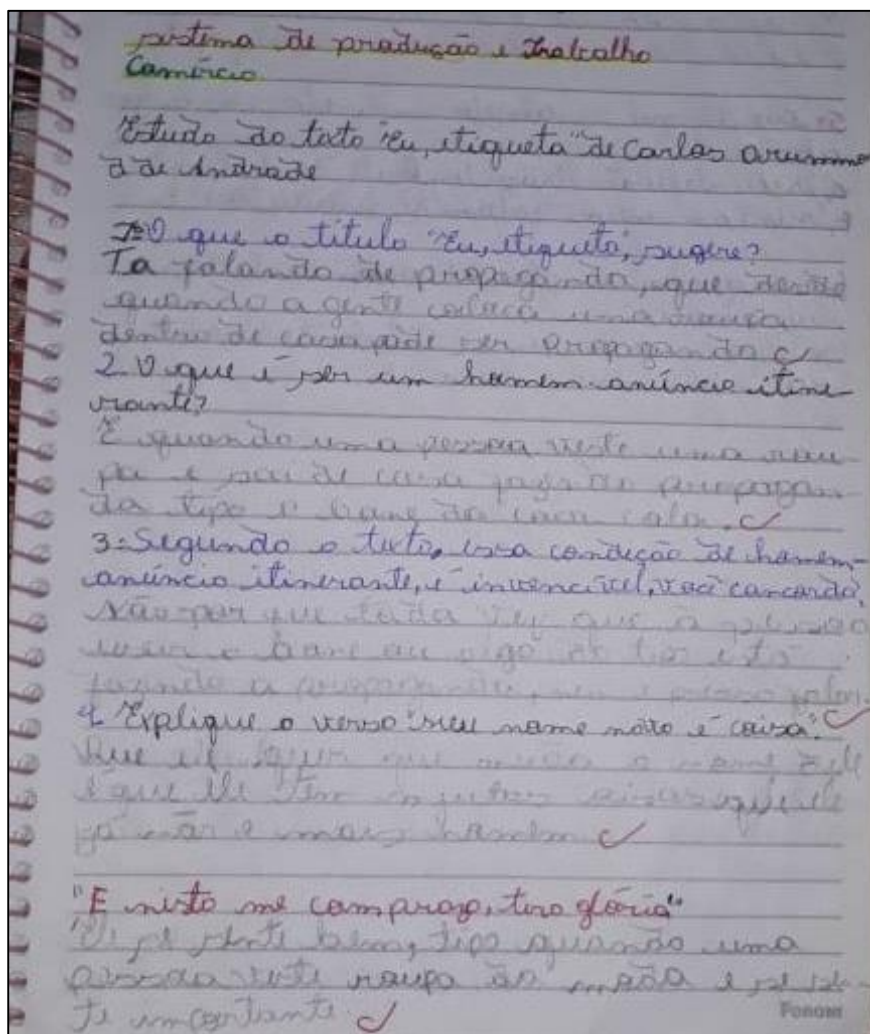 sistema de produção e Trabalho
Comércio
Estudo do texto "Eu, etiqueta" de Carlos Drummon
d de Andrade
1=O que o título "Eu, etiqueta", sugere?
Ta falando de propaganda, que desde
quando a gente coloca uma roupa
dentro de casa pode ser propaganda
2. O que é ser um homem-anúncio itine-
rante?
E quando uma pessoa veste uma rou
pa e sai de casa fazendo propagan
da tipo o bone da coca cola.
3=Segundo o texto, essa condição de homem-
anúncio itinerante, é invencível, você concorda,
Não por que toda vez que a pessoa
usar o bone ou algo do tipo está
fazendo a propaganda, nem é preciso falar.
4. Explique o verso "meu nome novo é coisa".
Que ele quer que o nome
é que ele tem que ele
já não é mais homem
"E nisto me comprazo, tiro glória"
se sente bem, tipo quando uma
pessoa veste roupa da moda e se sen-
te importante
FORONI